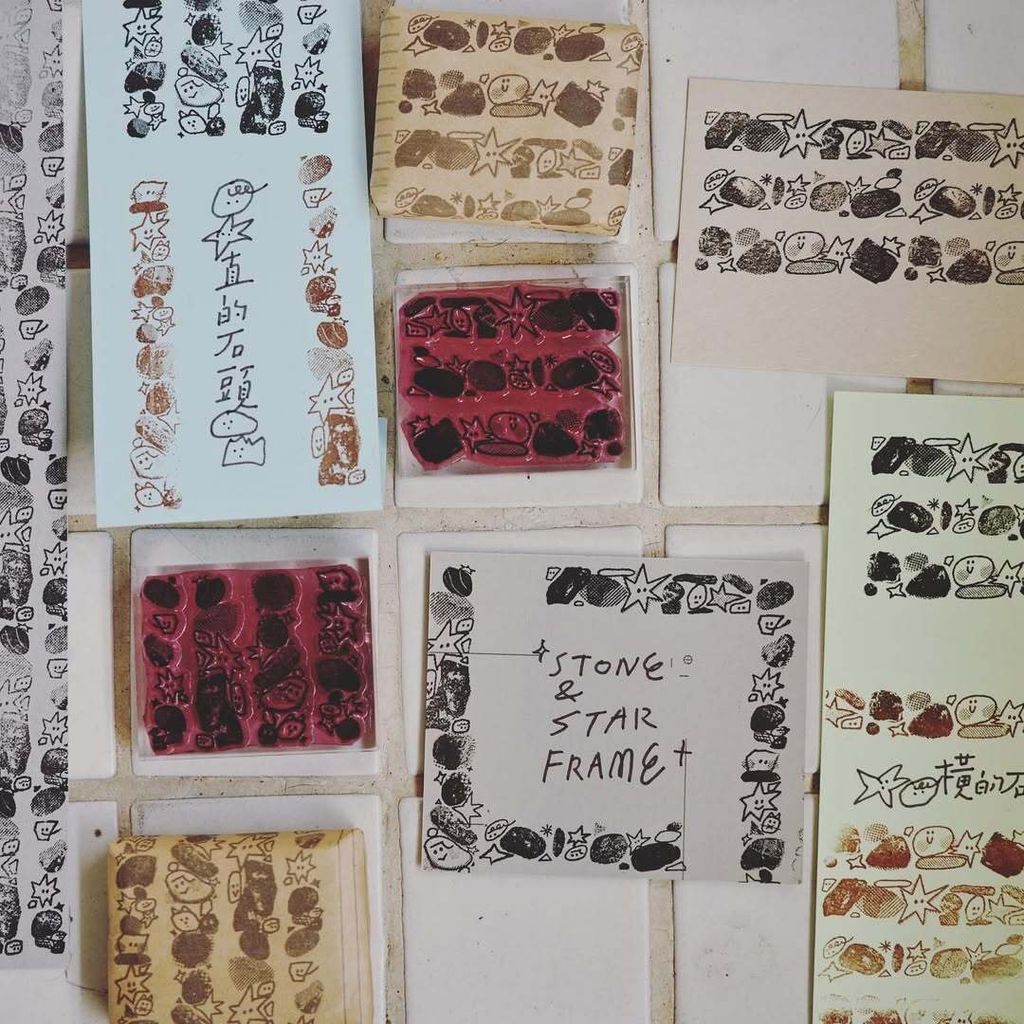 直的石頭
STONE
&
STAR
FRAME
橫的石